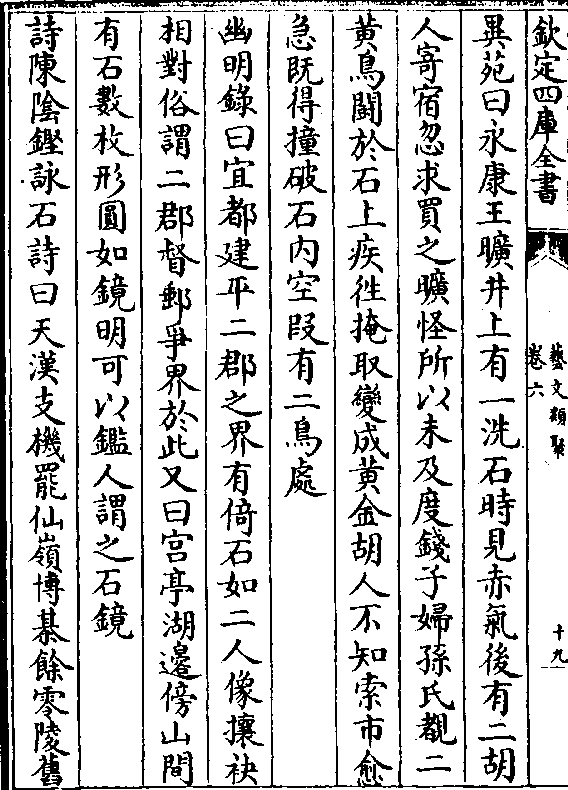 欽定四庫全書
藝文類聚
卷六
十九
異苑曰永康王曠井上有一洗石時見赤氣後有二胡
人寄宿忽求買之曠怪所以未及度錢子婦孫氏覩二
黄鳥鬭於石上疾徃掩取變成黄金胡人不知索市愈
急既得撞破石内空段有二鳥處
幽明錄曰宜都建平二郡之界有倚石如二人像攘袂
相對俗謂二郡督郵爭界於此又曰宫亭湖邊傍山間
有石數枚形圓如鏡明可以鑑人謂之石鏡
詩陳陰鏗詠石詩曰天漢支機罷仙嶺博棊餘零陵舊